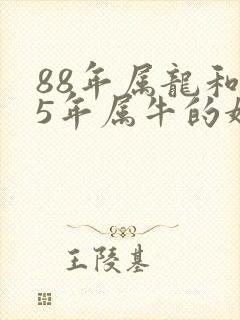 88年属龍和
5年属牛的
王陵基